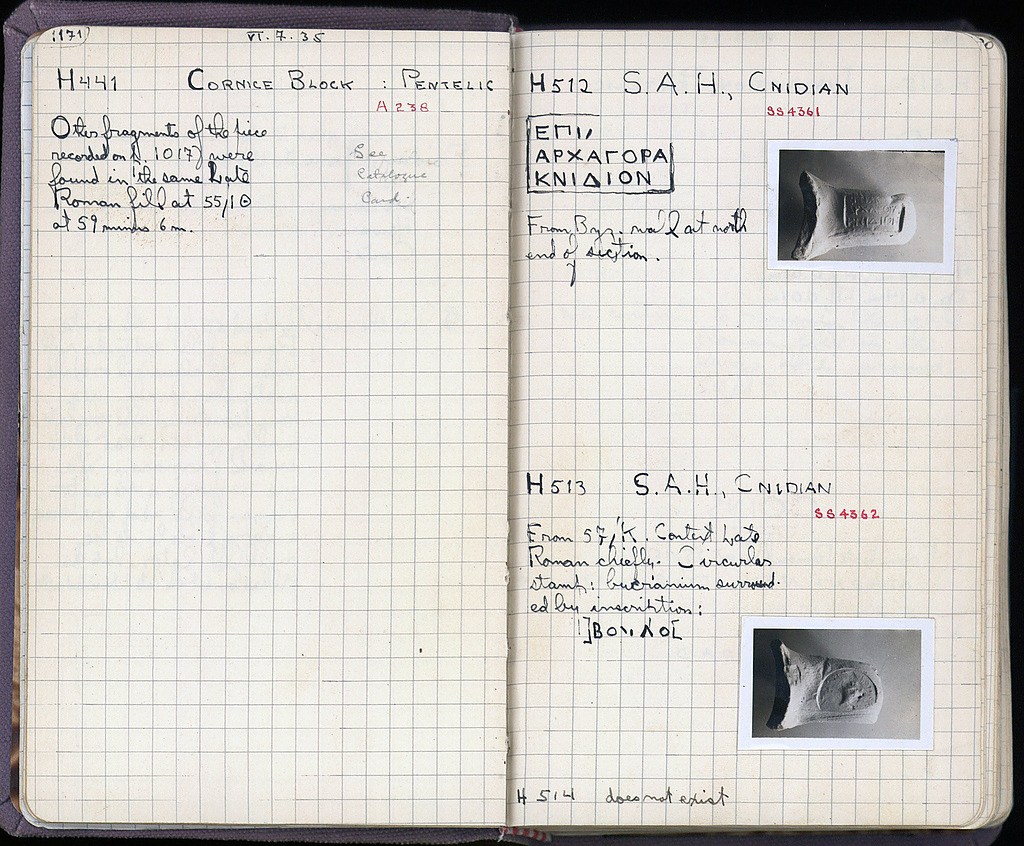 1171
VI.7.35
H441 CORNICE BLOCK : PENTELIC
A 238
Other fragments of the piece
recorded on p. 1017) were
found in the same Late
Roman fill at 55/ΙΘ
at 59 minus 6 m.
See
Catalogue
Card.
H512 S.A.H., CNIDIAN
SS4361
ΕΠΙ
ΑΡΧΑΓΟΡΑ
ΚΝΙΔΙΟΝ
From Byz. wall at north
end of section.
H513 S.A.H., CNIDIAN
SS4362
From 57/Κ. Context Late
Roman chiefly. Circular
stamp: bucranium surround-
ed by inscription:
]ΒΟΥΛΟΣ
H 514 does not exist